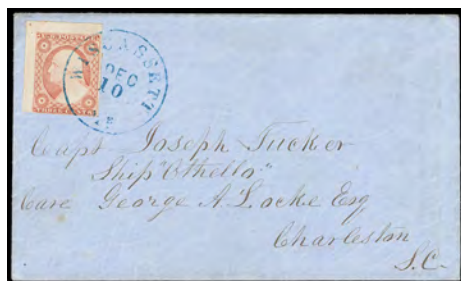 WISCASSETT
DEC
10
Capt Joseph Tucker
Ship "Othello"
Care George A Locke Esq
Charleston
S.C.